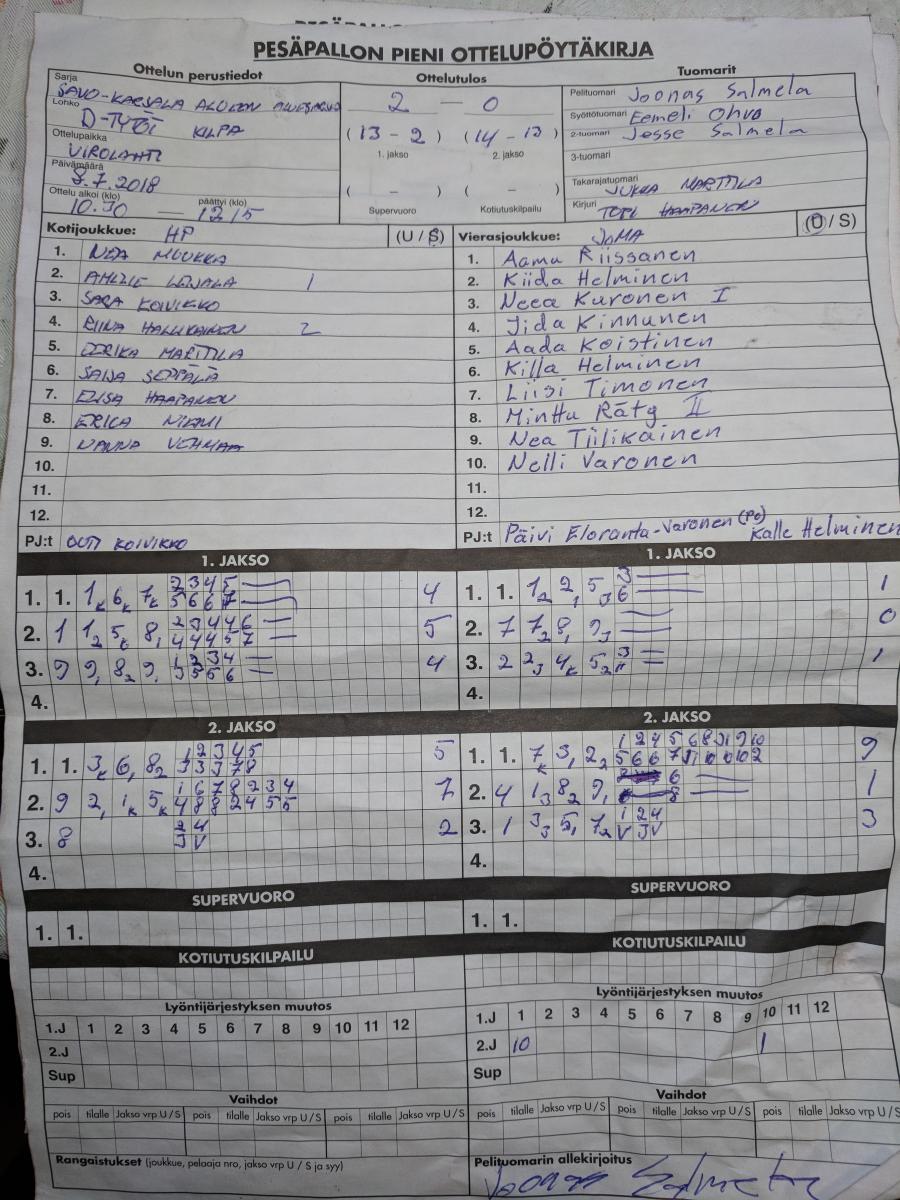 PESÄPALLON PIENI OTTELUPÖYTÄKIRJA
Ottelun perustiedot
Sarja
SAVO-KARJALA ALUEEN
Lohko
D-TYTÖT KILPA
Ottelupaikka
VIROLAHTI
Päivämäärä
8.7.2018
Ottelu alkoi (klo) päättyi (klo)
10.30 — 1215
Ottelutulos
2 — 0
(13 - 2) (14 - 13)
1. jakso 2. jakso
( - ) ( - )
Supervuoro Kotiutuskilpailu
Tuomarit
Pelituomari Joonas Salmela
Syöttötuomari Eemeli Ohvo
2-tuomari Jesse Salmela
3-tuomari
Takarajatuomari JUKKA MARTTILA
Kirjuri TOPI HAAPANEN
Kotijoukkue: HP (U / S)
1. NEA MUUKKA
2. 1
3. SARA KOIVIKKO
4. RIINA HALLIKAINEN 2
5. EERIKA MARTTILA
6. SAIJA SEPPÄLÄ
7. ELISA HAAPANEN
8. ERICA NIEMI
9. NANNA VEHMAA
10.
11.
12.
PJ:t OUTI KOIVIKKO
Vierasjoukkue: JoMA (U / S)
1. Aamu Riissanen
2. Kiida Helminen
3. Neea Kuronen I
4. Iida Kinnunen
5. Aada Koistinen
6. Killa Helminen
7. Liisi Timonen
8. Minttu Räty II
9. Nea Tiilikainen
10. Nelli Varonen
11.
12.
PJ:t Päivi Eloranta-Varonen (Po) Kalle Helminen
1. JAKSO
1. 1. 1K 6K 7K 2 3 4 5 4
5 6 6 7
2. 1 12 5K 8, 2 3 4 4 6 5
4 4 4 5 7
3. 9 9, 82 9, 1 2 3 4 4
3 5 5 6
4.
1. JAKSO
1. 1. 12 2, 5J 3 1
6
2. 7 72 8, 9J 0
3. 2 2J 4K 52 3 1
4.
2. JAKSO
1. 1. 3K 6, 82 1 2 3 4 5 5
3 3 3 7 8
2. 9 2, 1K 5K 1 6 7 8 2 3 4 7
4 8 8 2 4 5 5
3. 8 2 4 2
J V
4.
2. JAKSO
1. 1. 7K 3, 22 1 2 4 5 6 8 9 10 9
5 6 6 7 10 10 2
2. 4 13 82 9, 6 1
8
3. 1 33 5, 72 1 2 4 3
V J V
4.
SUPERVUORO
1. 1.
KOTIUTUSKILPAILU
SUPERVUORO
1. 1.
KOTIUTUSKILPAILU
Lyöntijärjestyksen muutos
1.J 1 2 3 4 5 6 7 8 9 10 11 12
2.J
Sup
Lyöntijärjestyksen muutos
1.J 1 2 3 4 5 6 7 8 9 10 11 12
2.J 10 1
Sup
Vaihdot
pois tilalle Jakso vrp U / S pois tilalle Jakso vrp U / S pois tilalle Jakso vrp U / S
Vaihdot
pois tilalle Jakso vrp U / S pois tilalle Jakso vrp U / S pois tilalle Jakso vrp U / S
Rangaistukset (joukkue, pelaaja nro, jakso vrp U / S ja syy)
Pelituomarin allekirjoitus
Joonas Salmela